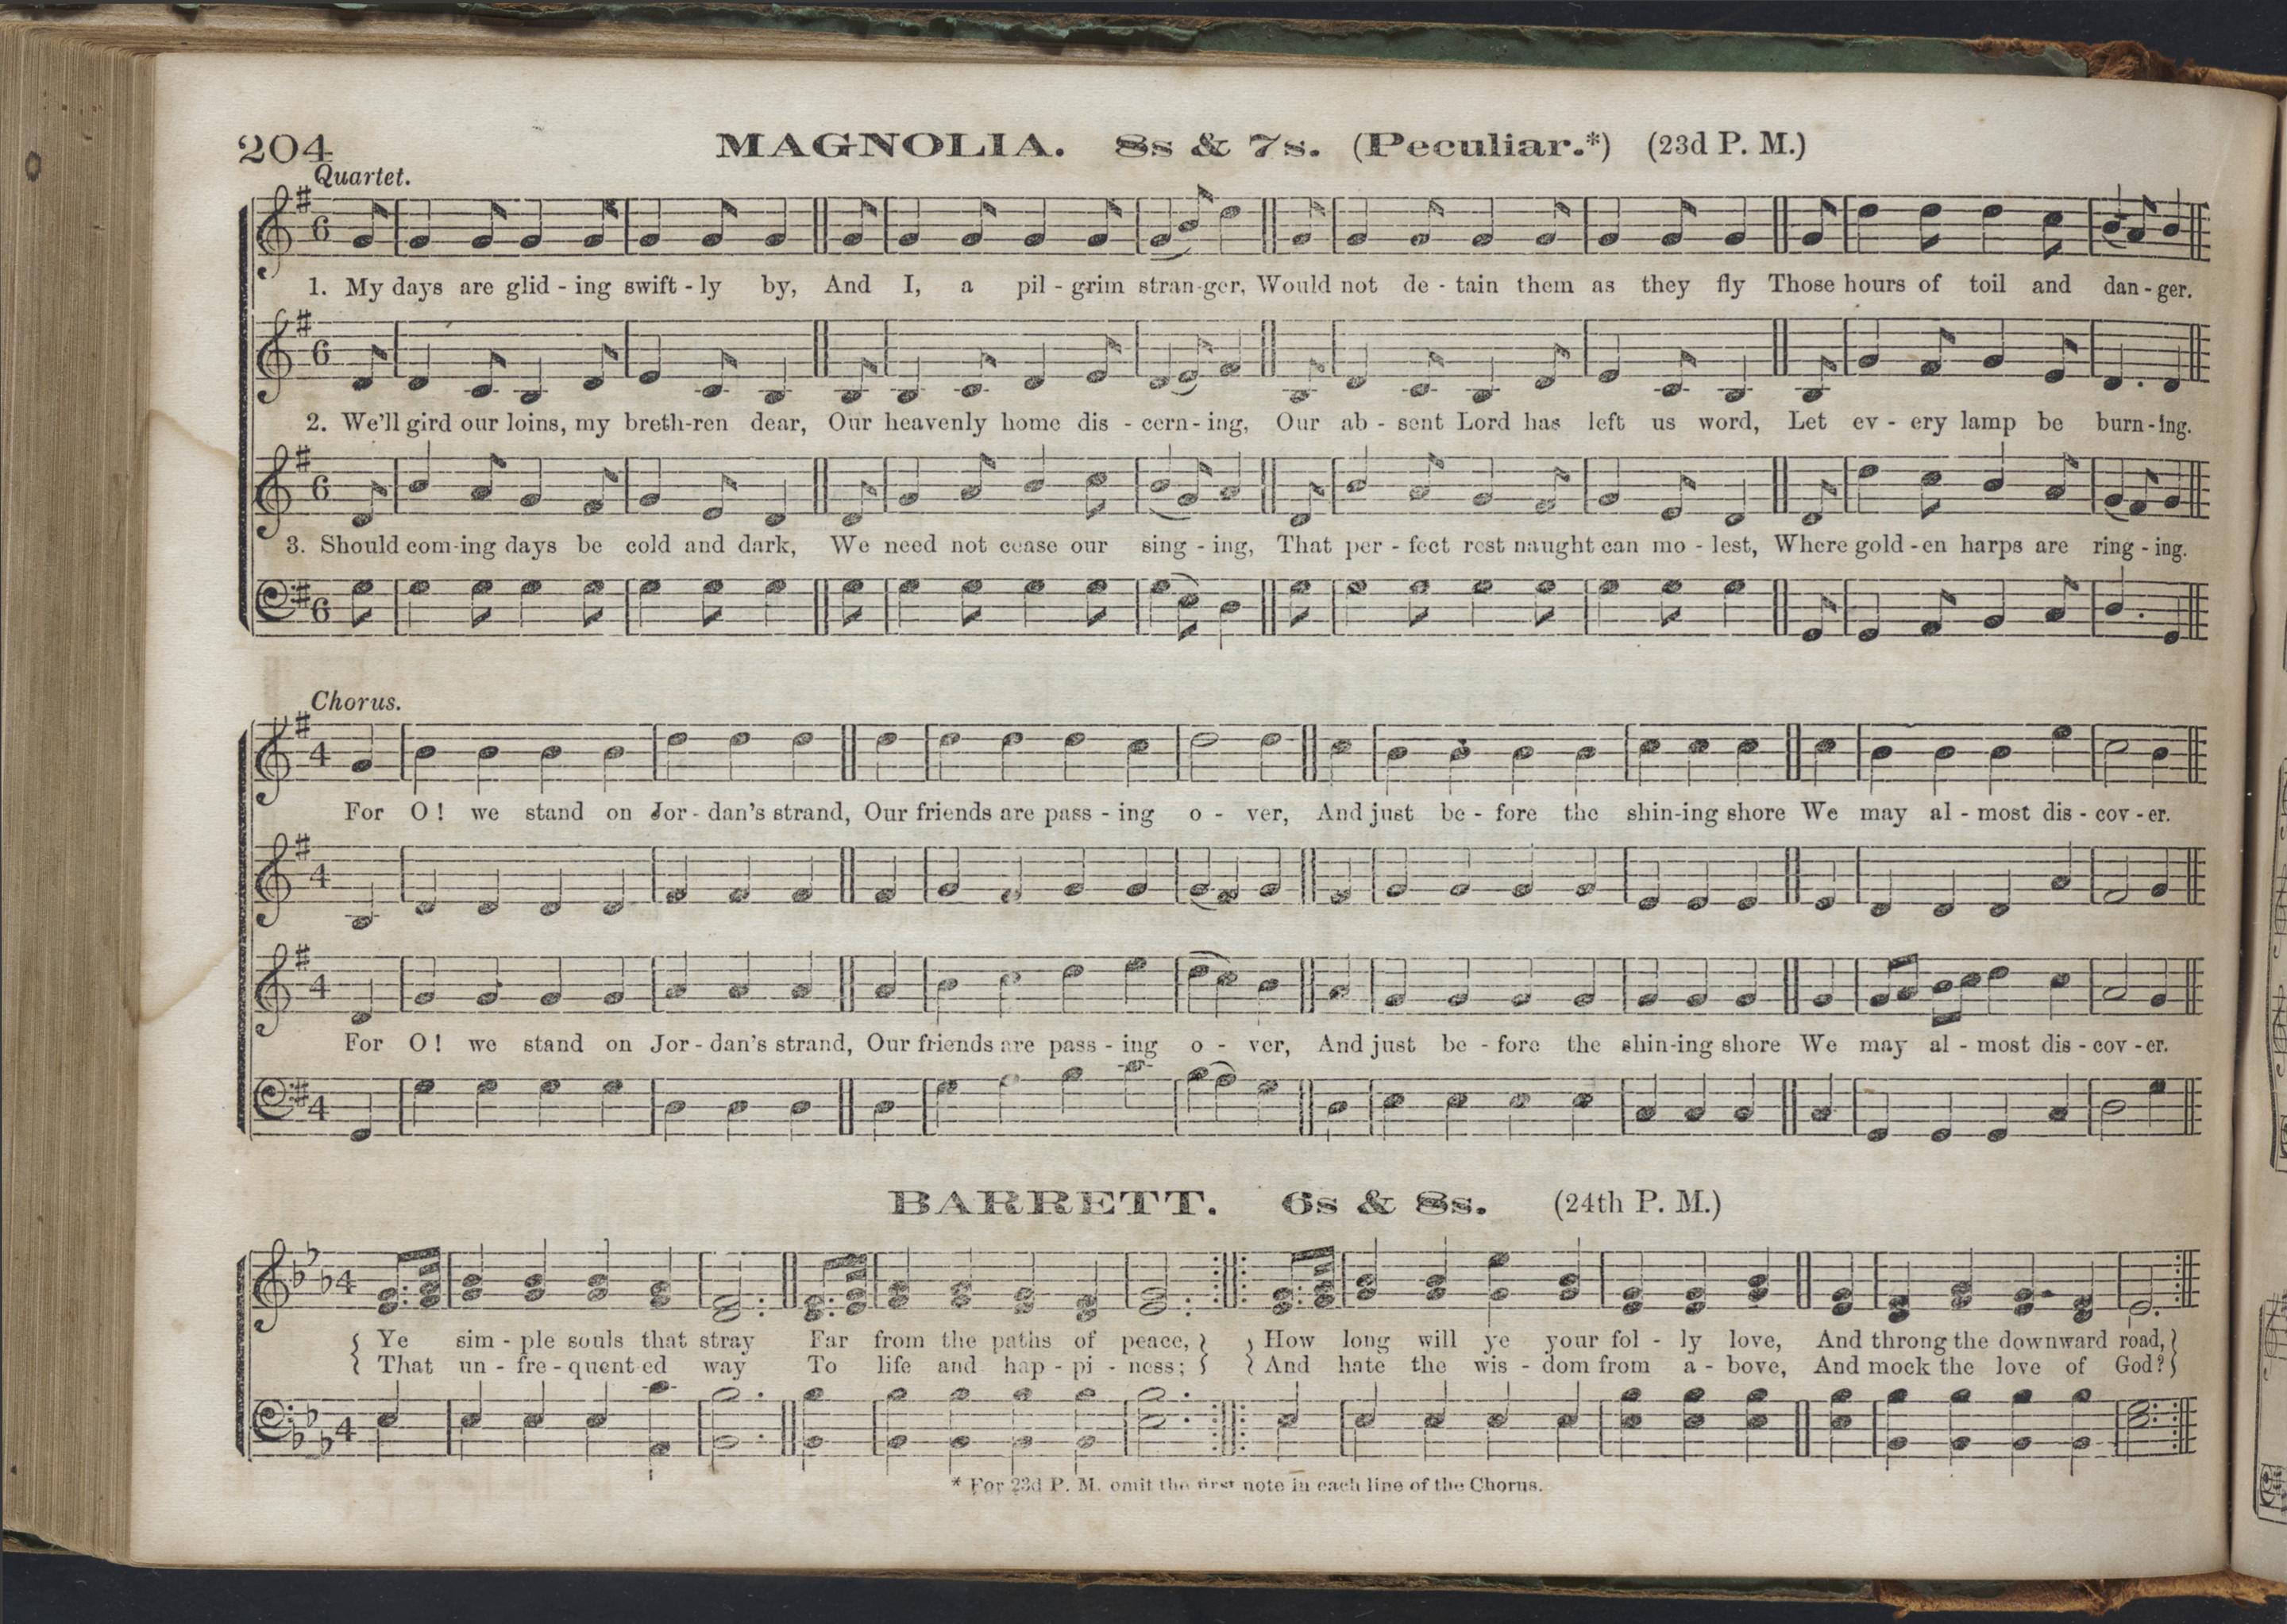 204
MAGNOLIA. 8s & 7s. (Peculiar.*) (23d P. M.)
Quartet.
6
1. My days are glid - ing swift - ly by, And I, a pil - grim stran-ger, Would not de - tain them as they fly Those hours of toil and dan - ger.
6
2. We'll gird our loins, my breth-ren dear, Our heavenly home dis - cern - ing, Our ab - sent Lord has left us word, Let ev - ery lamp be burn - ing.
6
3. Should com-ing days be cold and dark, We need not cease our sing - ing, That per - fect rest naught can mo - lest, Where gold - en harps are ring - ing.
6
Chorus.
4
For O ! we stand on Jor - dan's strand, Our friends are pass - ing o - ver, And just be - fore the shin-ing shore We may al - most dis - cov - er.
4
4
For O ! we stand on Jor - dan's strand, Our friends are pass - ing o - ver, And just be - fore the shin-ing shore We may al - most dis - cov - er.
4
BARRETT. 6s & 8s. (24th P. M.)
4
Ye sim - ple souls that stray Far from the paths of peace, How long will ye your fol - ly love, And throng the downward road,
That un - fre - quent-ed way To life and hap - pi - ness; And hate the wis - dom from a - bove, And mock the love of God?
4
* For 23d P. M. omit the first note in each line of the Chorus.